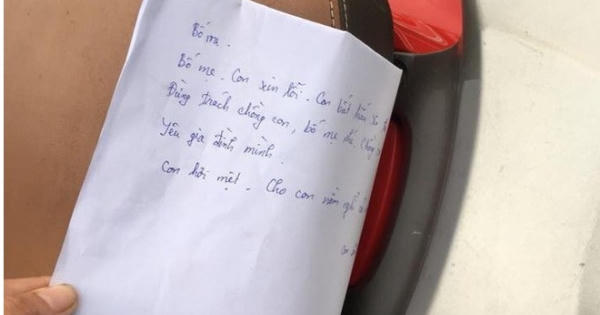 Bố mẹ.
Bố mẹ. Con xin lỗi. Con bất hiếu
Đừng trách chồng con, bố mẹ nhé. Chồng
Yêu gia đình mình.
Con hơi mệt. Cho con nằm nghỉ